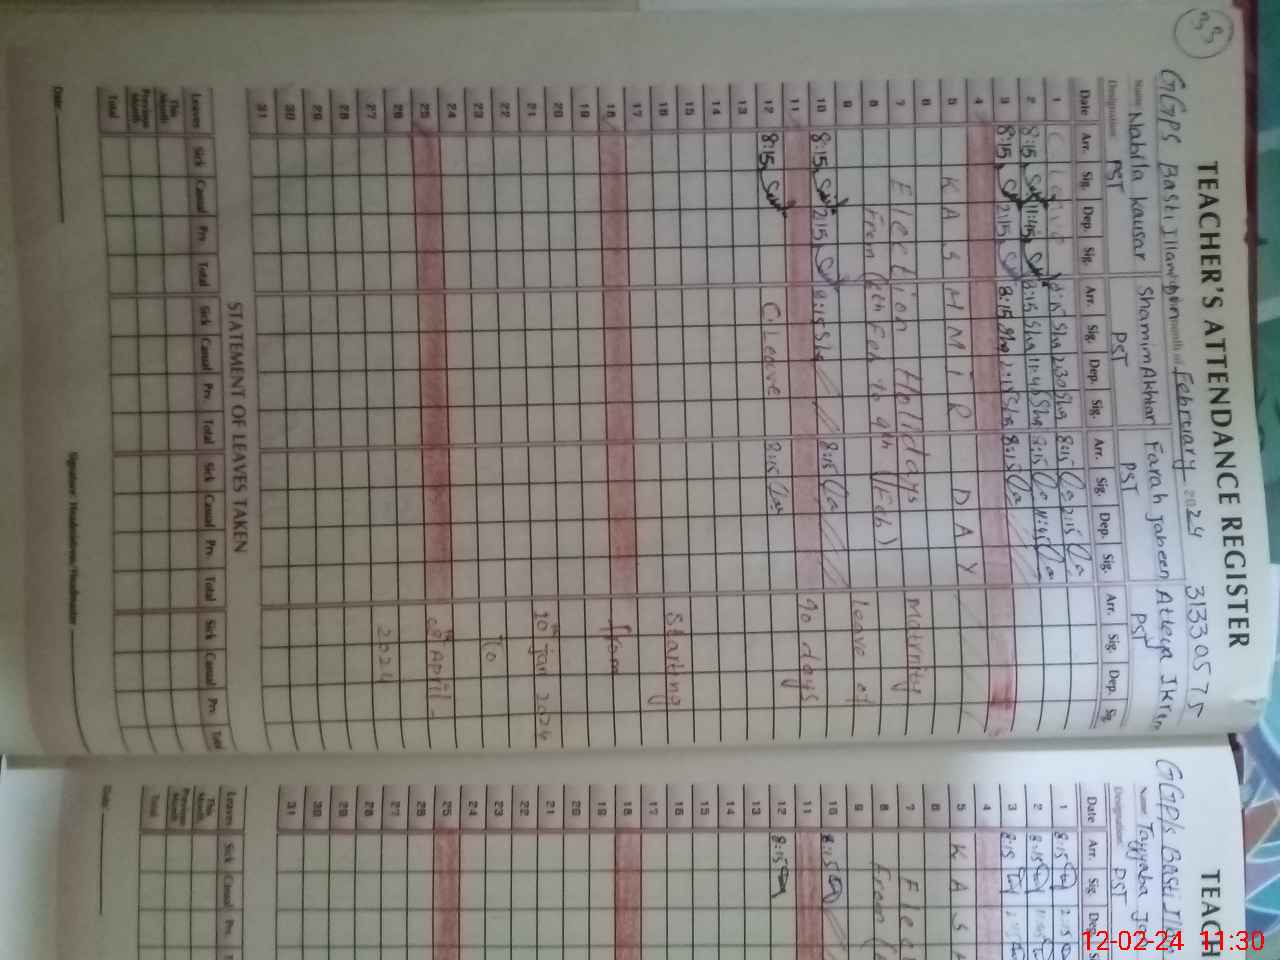 33
TEACHER'S ATTENDANCE REGISTER
GGPS Basti month of February 2024 31330575
Name Nabila Kausar Shamim Akhtar Farah Jabeen Atteya
Designation PST PST PST PST
Date Arr. Sig. Dep. Sig. Arr. Sig. Dep. Sig. Arr. Sig. Dep. Sig. Arr. Sig. Dep. Sig.
1 Sha 2:30 Sha 8:15 2:15
2 8:15 11:45 8:15 Sha 11:45 Sha 8:15 11:45
3 8:15 2:15 8:15 Sha 2:15 Sha 8:15
4
5 KASHMIR DAY
6
7 Election Holidays Maternity
8 From 6th Feb to 9th (Feb)
9 Leave of
10 8:15 2:15 8:15 Sha 8:15
11 90 days
12 8:15 C. Leave 8:15
13
14
15
16 Starting
17
18 from
19
20
21 10th Jan 2024
22
23 To
24
25 08th April
26
27 2024
28
29
30
31
STATEMENT OF LEAVES TAKEN
Leaves Sick Casual Prv. Total Sick Casual Prv. Total Sick Casual Prv. Total Sick Casual Prv. Total
This Month
Previous Month
Total
Date Signature Headmistress/Headmaster
TEACH
GGP/s Basti
Name Tayyaba
Designation PST
Date Arr. Sig. Dep.
1 8:15 2:15
2 8:15 11:45
3 8:15 2:15
4
5 KAS
6
7 Elec
8 From
9
10 8:15
11
12 8:15
13
14
15
16
17
18
19
20
21
22
23
24
25
26
27
28
29
30
31
Leaves Sick Casual Prv.
This Month
Previous Month
Total
Date
12-02-24 11:30